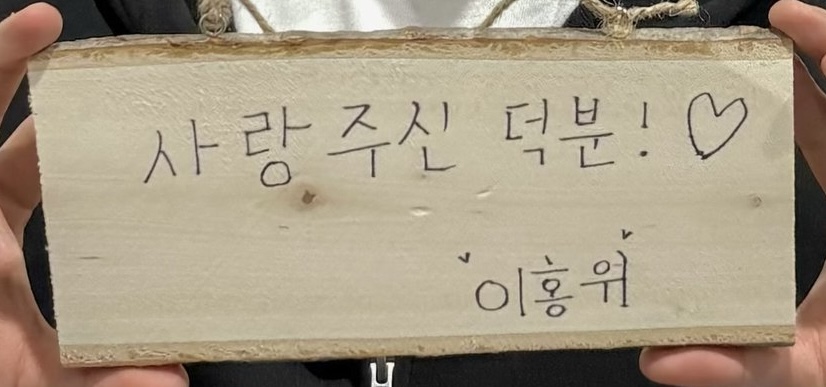 사랑 주신 덕분! ♡
이홍위